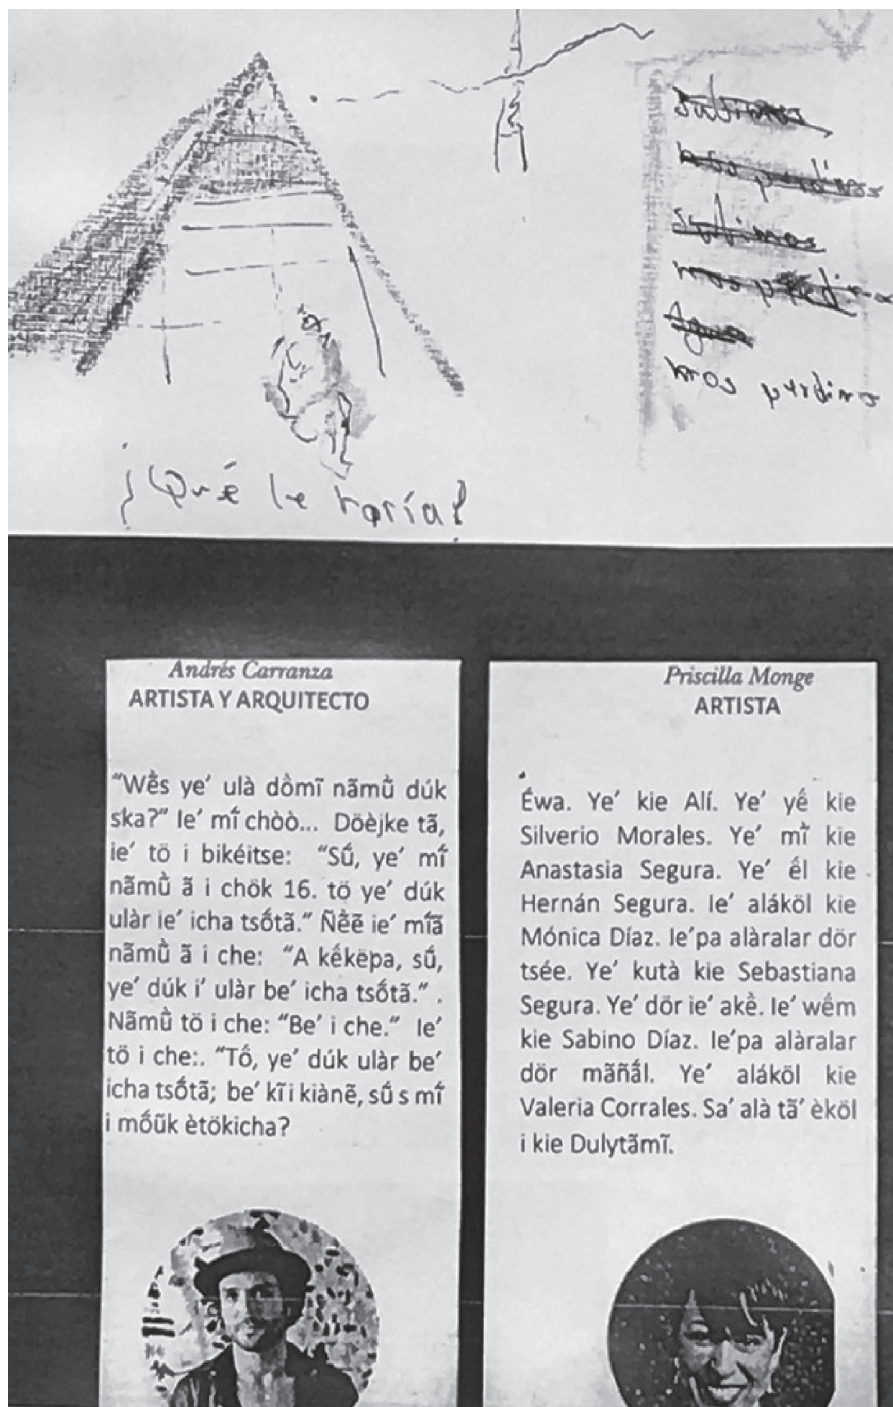 nos perdimos
¿Qué le haría?
Andrés Carranza
ARTISTA Y ARQUITECTO
“Wë̀s ye’ ulà dö̀mĩ nãmù̈ dúk
ska?” Ie’ mí̃ chòò... Döèjke tã,
ie’ tö i bikéitse: “Sṹ, ye’ mí̃
nãmù̈ ã i chök 16. tö ye’ dúk
ulàr ie’ icha tsṍtã.” Ñẽ̀ẽ ie’ mí̃ã
nãmù̈ ã i che: “A kë́këpa, sṹ,
ye’ dúk i’ ulàr be’ icha tsṍtã.” .
Nãmù̈ tö i che: “Be’ i che.” Ie’
tö i che:. “Tṍ, ye’ dúk ulàr be’
icha tsṍtã; be’ kĩ i kiànẽ, sṹ s mí̃
i mṍũk ètökicha?
Priscilla Monge
ARTISTA
Éwa. Ye’ kie Alí. Ye’ yë́ kie
Silverio Morales. Ye’ mĩ̀ kie
Anastasia Segura. Ye’ ë́l kie
Hernán Segura. Ie’ aláköl kie
Mónica Díaz. Ie’pa alàralar dör
tsée. Ye’ kutà kie Sebastiana
Segura. Ye’ dör ie’ akë̀. Ie’ wë́m
kie Sabino Díaz. Ie’pa alàralar
dör mãñã́l. Ye’ aláköl kie
Valeria Corrales. Sa’ alà tã’ èköl
i kie Dulytãmĩ.